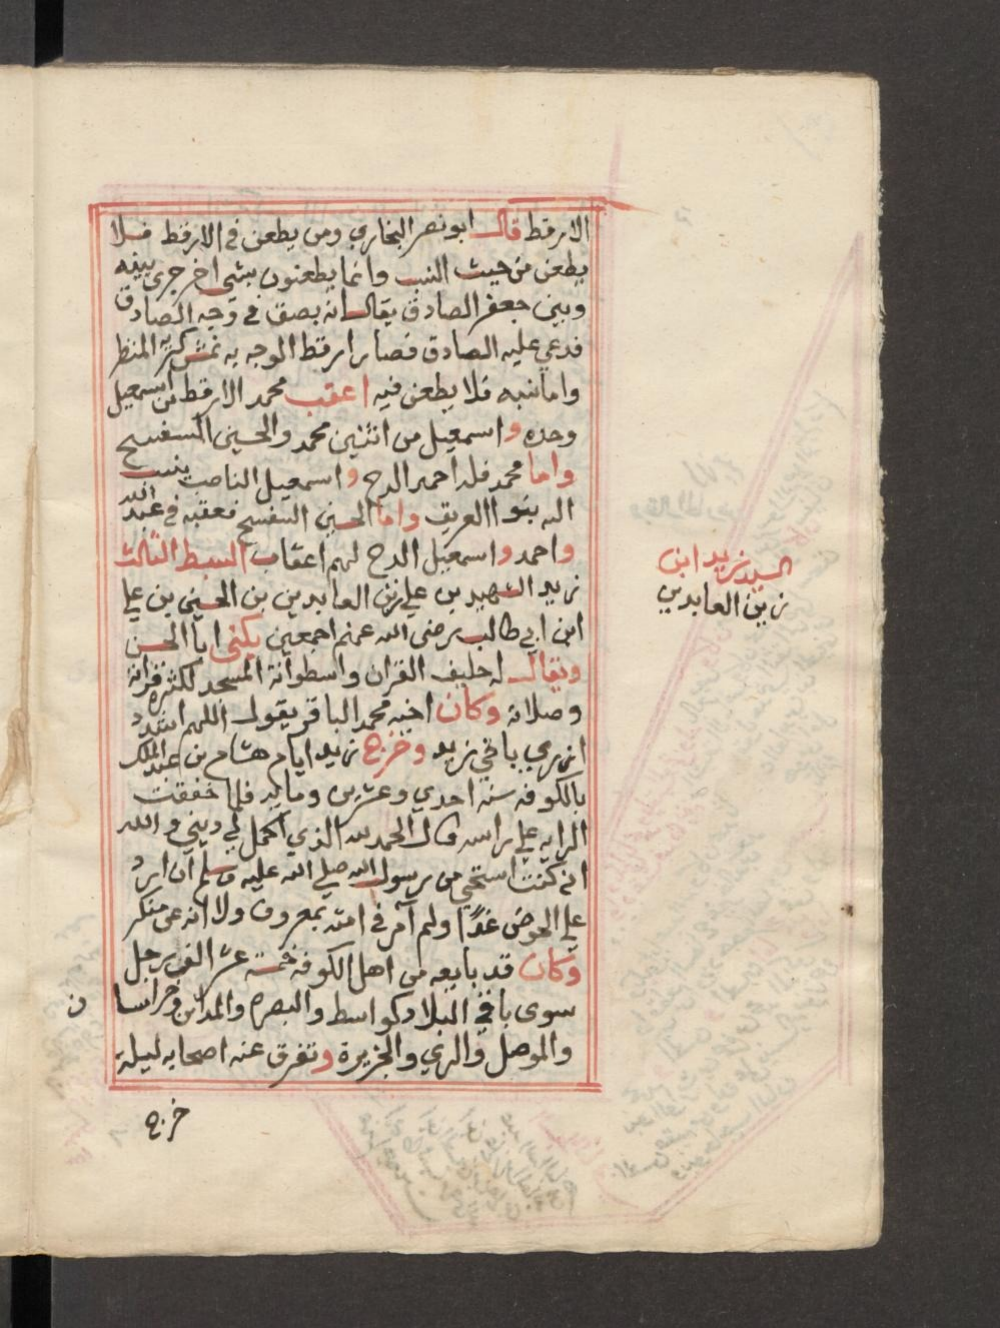 الارقط قال ابو نصر البخاري ومن يطعن في الارقط فلا
يطعن من حيث النسب وانما يطعنون بشي اخر جرى بينه
وبين جعفر الصادق يقال انه بصق في وجه الصادق
فدعي عليه الصادق فصار ارقط الوجه به نمش كريه المنظر
واما نسبه فلا يطعن فيه اعقب محمد الارقط من اسمعيل
وحده واسمعيل من اثنين محمد والحسين
واما محمد فله احمد الدخ واسمعيل الناصب ينسب
اليه بنوا الغريق واما الحسين فعقبه في عبد الله
واحمد واسمعيل الدخ لهم اعقاب السبط الثالث
زيد الشهيد بن علي زين العابدين بن الحسين بن علي
ابن ابي طالب رضى الله عنهم اجمعين يكنى ابا الحسن
ويقال له حليف القران واسطوانة المسجد لكثرة قراته
وصلاته وكان اخيه محمد الباقر يقول اللهم اشدد
ازري باخي زيد وخرج زيد ايام هشام بن عبد الملك
بالكوفه سنه احدي وعشرين ومايه فلما خفقت
الرايه علي راسه قال الحمد لله الذي اكمل لي ديني والله
اني كنت استحي من رسول الله صلي الله عليه وسلم ان ارد
علي الحوض غدًا ولم آمر في امته بمعروف ولا انه عن منكر
وكان قد بايعه من اهل الكوفه خمسة عشر الف رجل
سوى باقي البلاد كواسط والبصره والمداين وخراسا
ن
والموصل والري والجزيرة وتفرق عنه اصحابه ليلة
خرج
السيد زيد ابن
زين العابدين